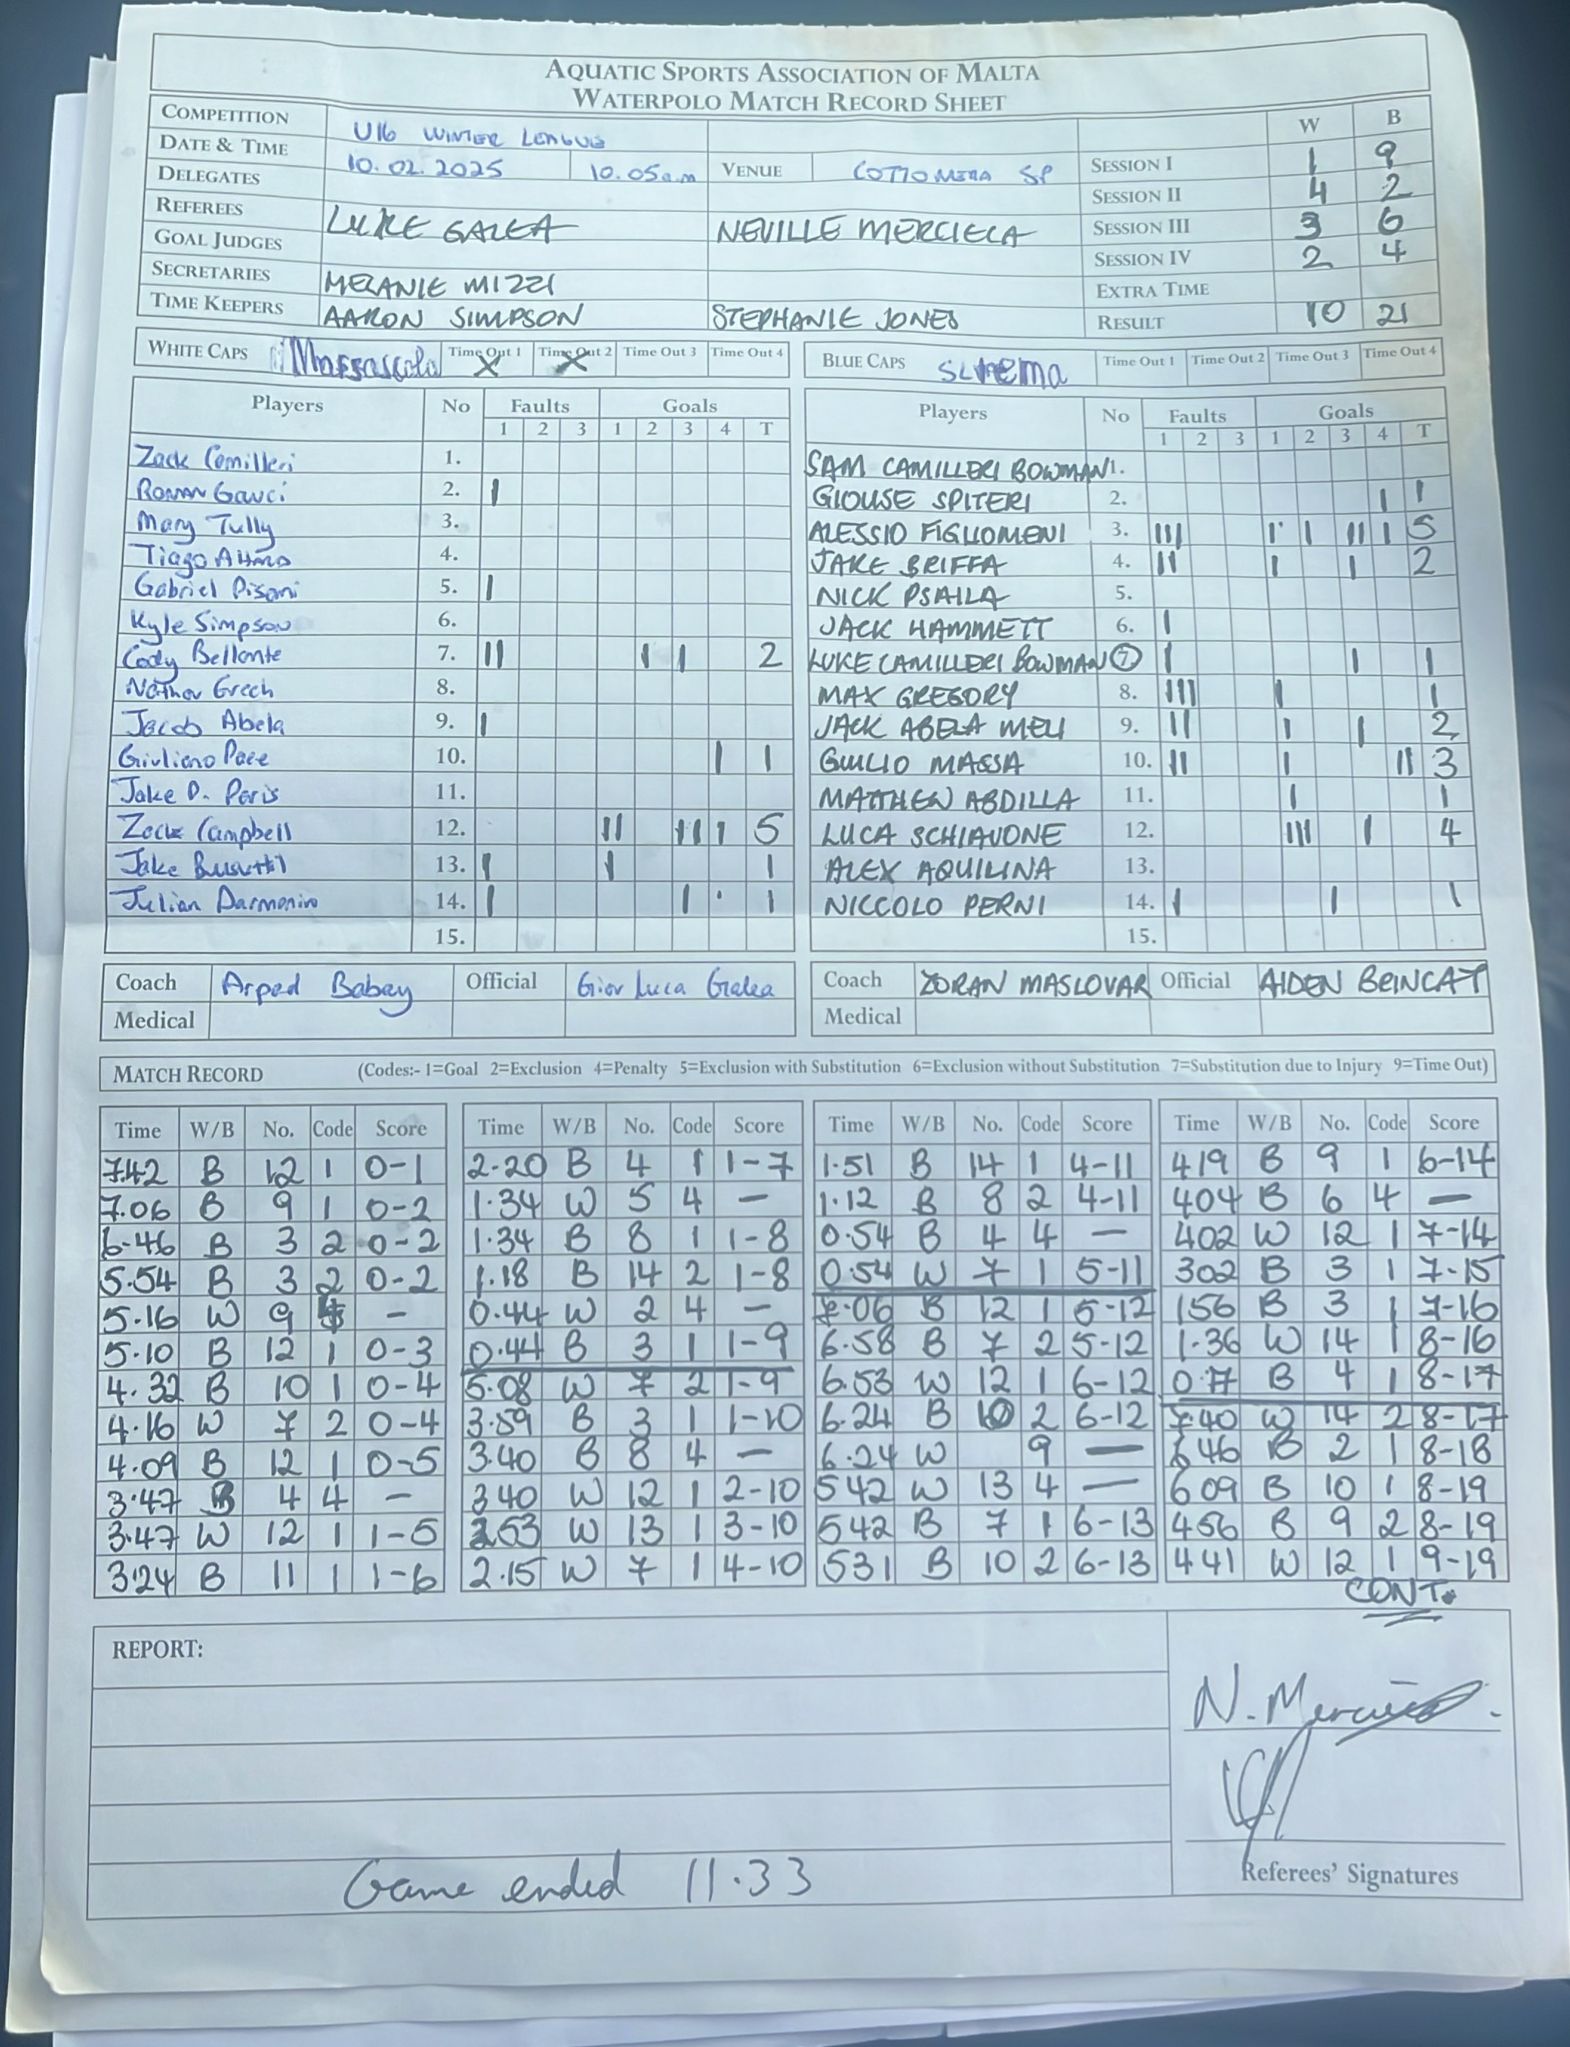 AQUATIC SPORTS ASSOCIATION OF MALTA
WATERPOLO MATCH RECORD SHEET
COMPETITION U16 WINTER LEAGUE W B
DATE & TIME 10.02.2025 10.05am VENUE COTTONERA SP SESSION I 1 9
DELEGATES SESSION II 4 2
REFEREES LUKE GALEA NEVILLE MERCIECA SESSION III 3 6
GOAL JUDGES SESSION IV 2 4
SECRETARIES MELANIE MIZZI EXTRA TIME
TIME KEEPERS AARON SIMPSON STEPHANIE JONES RESULT 10 21
WHITE CAPS Marsascala Time Out 1 X Time Out 2 X Time Out 3 Time Out 4
BLUE CAPS SLIEMA Time Out 1 Time Out 2 Time Out 3 Time Out 4
Players No Faults Goals
1 2 3 1 2 3 4 T
Zack Camilleri 1.
Roman Gauci 2. I
Mary Tully 3.
Tiago 4.
Gabriel Pisani 5. I
Kyle Simpson 6.
Cody Bellante 7. II I I 2
Nathan Grech 8.
Jacob Abela 9. I
Giuliano Pace 10. I I
Jake D. Paris 11.
Zack Campbell 12. II III I 5
Jake Busuttil 13. I I I
Julian Darmanin 14. I I I
15.
Players No Faults Goals
1 2 3 1 2 3 4 T
SAM CAMILLERI BOWMAN 1.
GIOUSE SPITERI 2. I I
ALESSIO FIGLIOMENI 3. III I I II I 5
JAKE BRIFFA 4. II I I 2
NICK PSAILA 5.
JACK HAMMETT 6. I
LUKE CAMILLERI BOWMAN 7 I I I
MAX GREGORY 8. III I I
JACK ABELA MELI 9. II I I 2
GIULIO MASSA 10. II I II 3
MATTHEW ABDILLA 11. I I
LUCA SCHIAVONE 12. III I 4
ALEX AQUILINA 13.
NICCOLO PERNI 14. I I I
15.
Coach Arpad Babay Official Gian Luca Galea
Medical
Coach ZORAN MASLOVAR Official AIDEN BRINCAT
Medical
MATCH RECORD (Codes:- 1=Goal 2=Exclusion 4=Penalty 5=Exclusion with Substitution 6=Exclusion without Substitution 7=Substitution due to Injury 9=Time Out)
Time W/B No. Code Score
7.42 B 12 1 0-1
7.06 B 9 1 0-2
6.46 B 3 2 0-2
5.54 B 3 2 0-2
5.16 W 9 4 -
5.10 B 12 1 0-3
4.32 B 10 1 0-4
4.16 W 7 2 0-4
4.09 B 12 1 0-5
3.47 B 4 4 -
3.47 W 12 1 1-5
3.24 B 11 1 1-6
Time W/B No. Code Score
2.20 B 4 1 1-7
1.34 W 5 4 -
1.34 B 8 1 1-8
1.18 B 14 2 1-8
0.44 W 2 4 -
0.44 B 3 1 1-9
5.08 W 7 2 1-9
3.59 B 3 1 1-10
3.40 B 8 4 -
3.40 W 12 1 2-10
2.53 W 13 1 3-10
2.15 W 7 1 4-10
Time W/B No. Code Score
1.51 B 14 1 4-11
1.12 B 8 2 4-11
0.54 B 4 4 -
0.54 W 7 1 5-11
7.06 B 12 1 5-12
6.58 B 7 2 5-12
6.53 W 12 1 6-12
6.24 B 10 2 6-12
6.24 W 9 -
542 W 13 4 -
542 B 7 1 6-13
531 B 10 2 6-13
Time W/B No. Code Score
419 B 9 1 6-14
404 B 6 4 -
402 W 12 1 7-14
302 B 3 1 7-15
156 B 3 1 7-16
1.36 W 14 1 8-16
0.17 B 4 1 8-17
7.40 W 14 2 8-17
646 B 2 1 8-18
609 B 10 1 8-19
456 B 9 2 8-19
441 W 12 1 9-19
CONT.
REPORT:
N. Mercieca
Game ended 11.33
Referees' Signatures